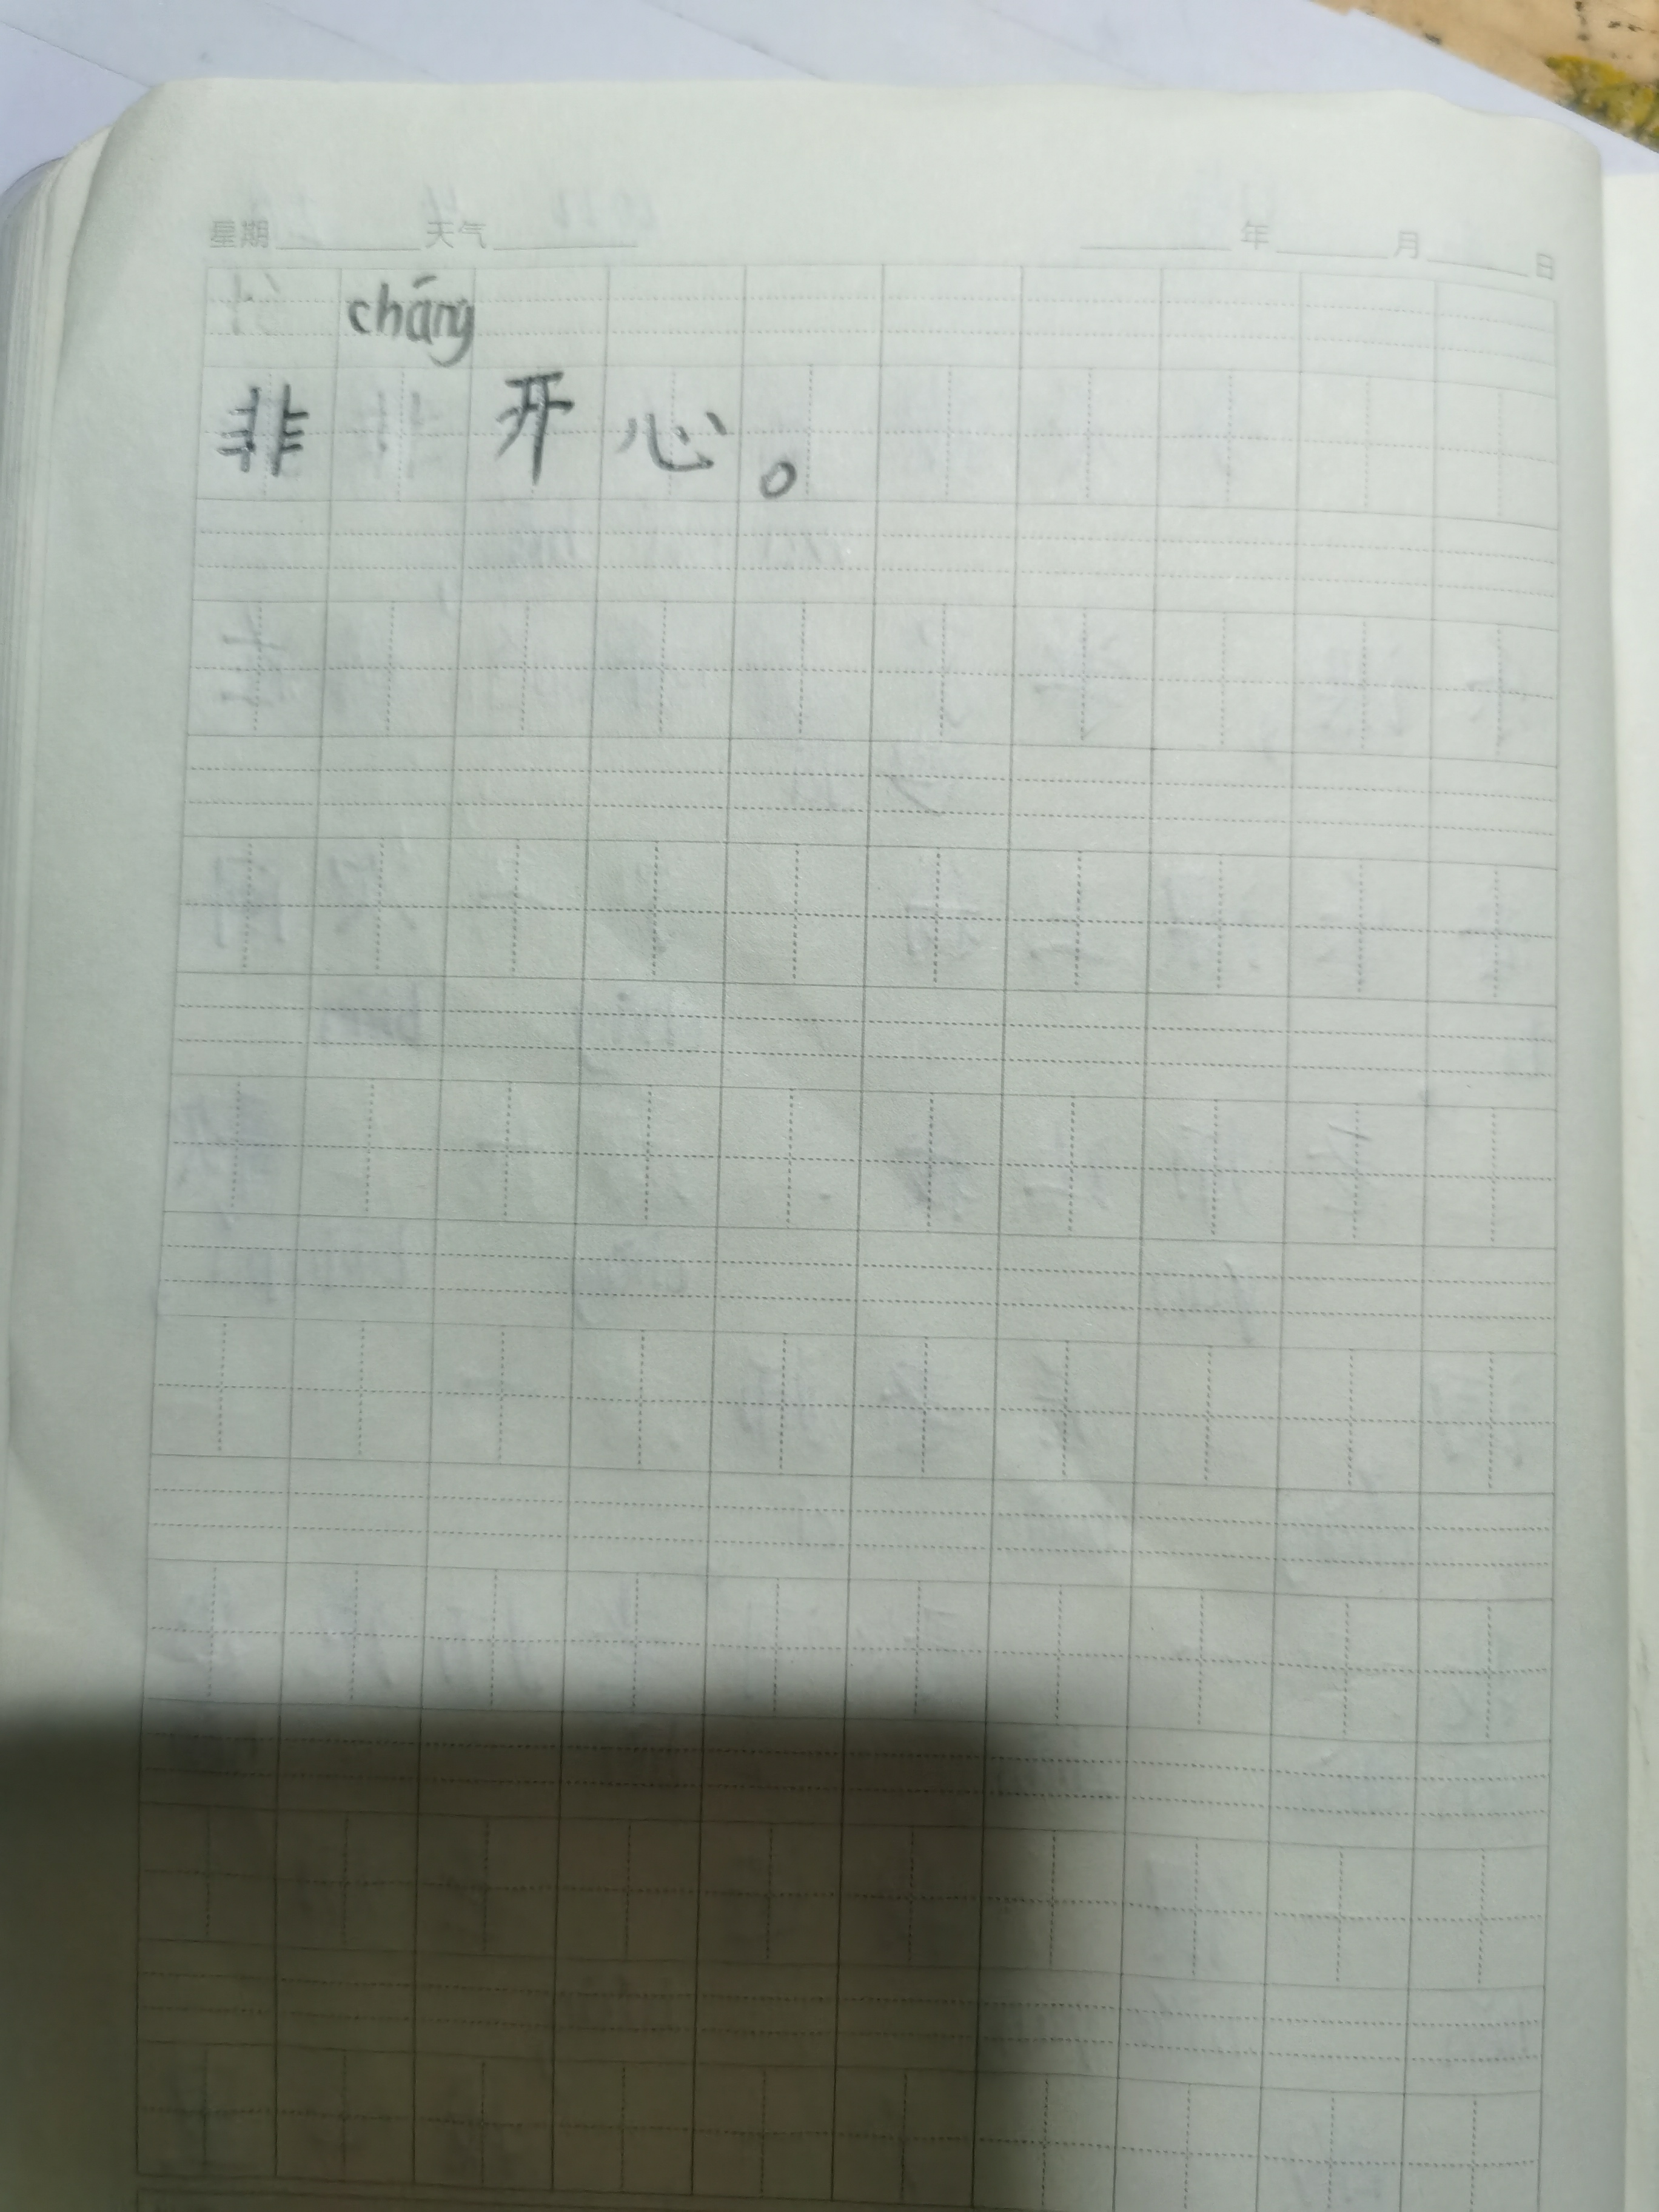 星期 天气 年 月 日
cháng
非 开心。